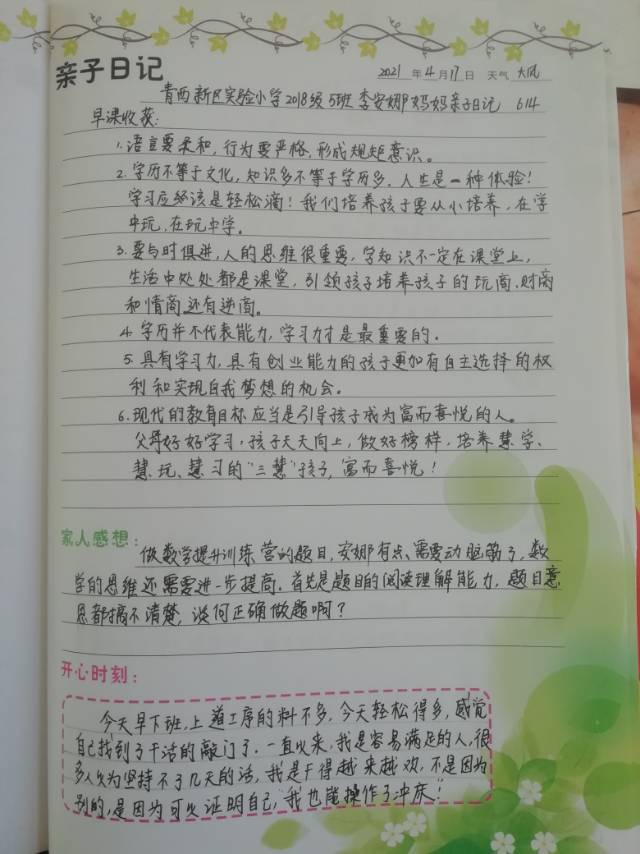 亲子日记
2021 年 4 月 17 日 天气 大风
青西新区实验小学2018级5班李安娜妈妈亲子日记 614
早课收获:
1.语言要柔和,行为要严格,形成规矩意识。
2.学历不等于文化,知识多不等于学历多。人生是一种体验!
学习应该是轻松滴!我们培养孩子要从小培养,在学
中玩,在玩中学。
3.要与时俱进,人的思维很重要,学知识不一定在课堂上,
生活中处处都是课堂,引领孩子培养孩子的玩商.财商
和情商.还有逆商。
4.学历并不代表能力,学习力才是最重要的。
5.具有学习力,具有创业能力的孩子更加有自主选择的权
利和实现自我梦想的机会。
6.现代的教育目标应当是引导孩子成为富而喜悦的人。
父母好好学习,孩子天天向上,做好榜样,培养慧学、
慧玩、慧习的“三慧”孩子,富而喜悦!
家人感想:
做数学提升训练营的题目,安娜有点需要动脑筋了,数
学的思维还需要进一步提高。首先是题目的阅读理解能力,题目意
思都搞不清楚,谈何正确做题啊?
开心时刻:
今天早下班,上道工序的料不多,今天轻松得多,感觉
自己找到了干活的敲门了.一直以来,我是容易满足的人,很
多人以为坚持不了几天的活,我是干得越来越欢,不是因为
别的,是因为可以证明自己,“我也能操作了冲床!